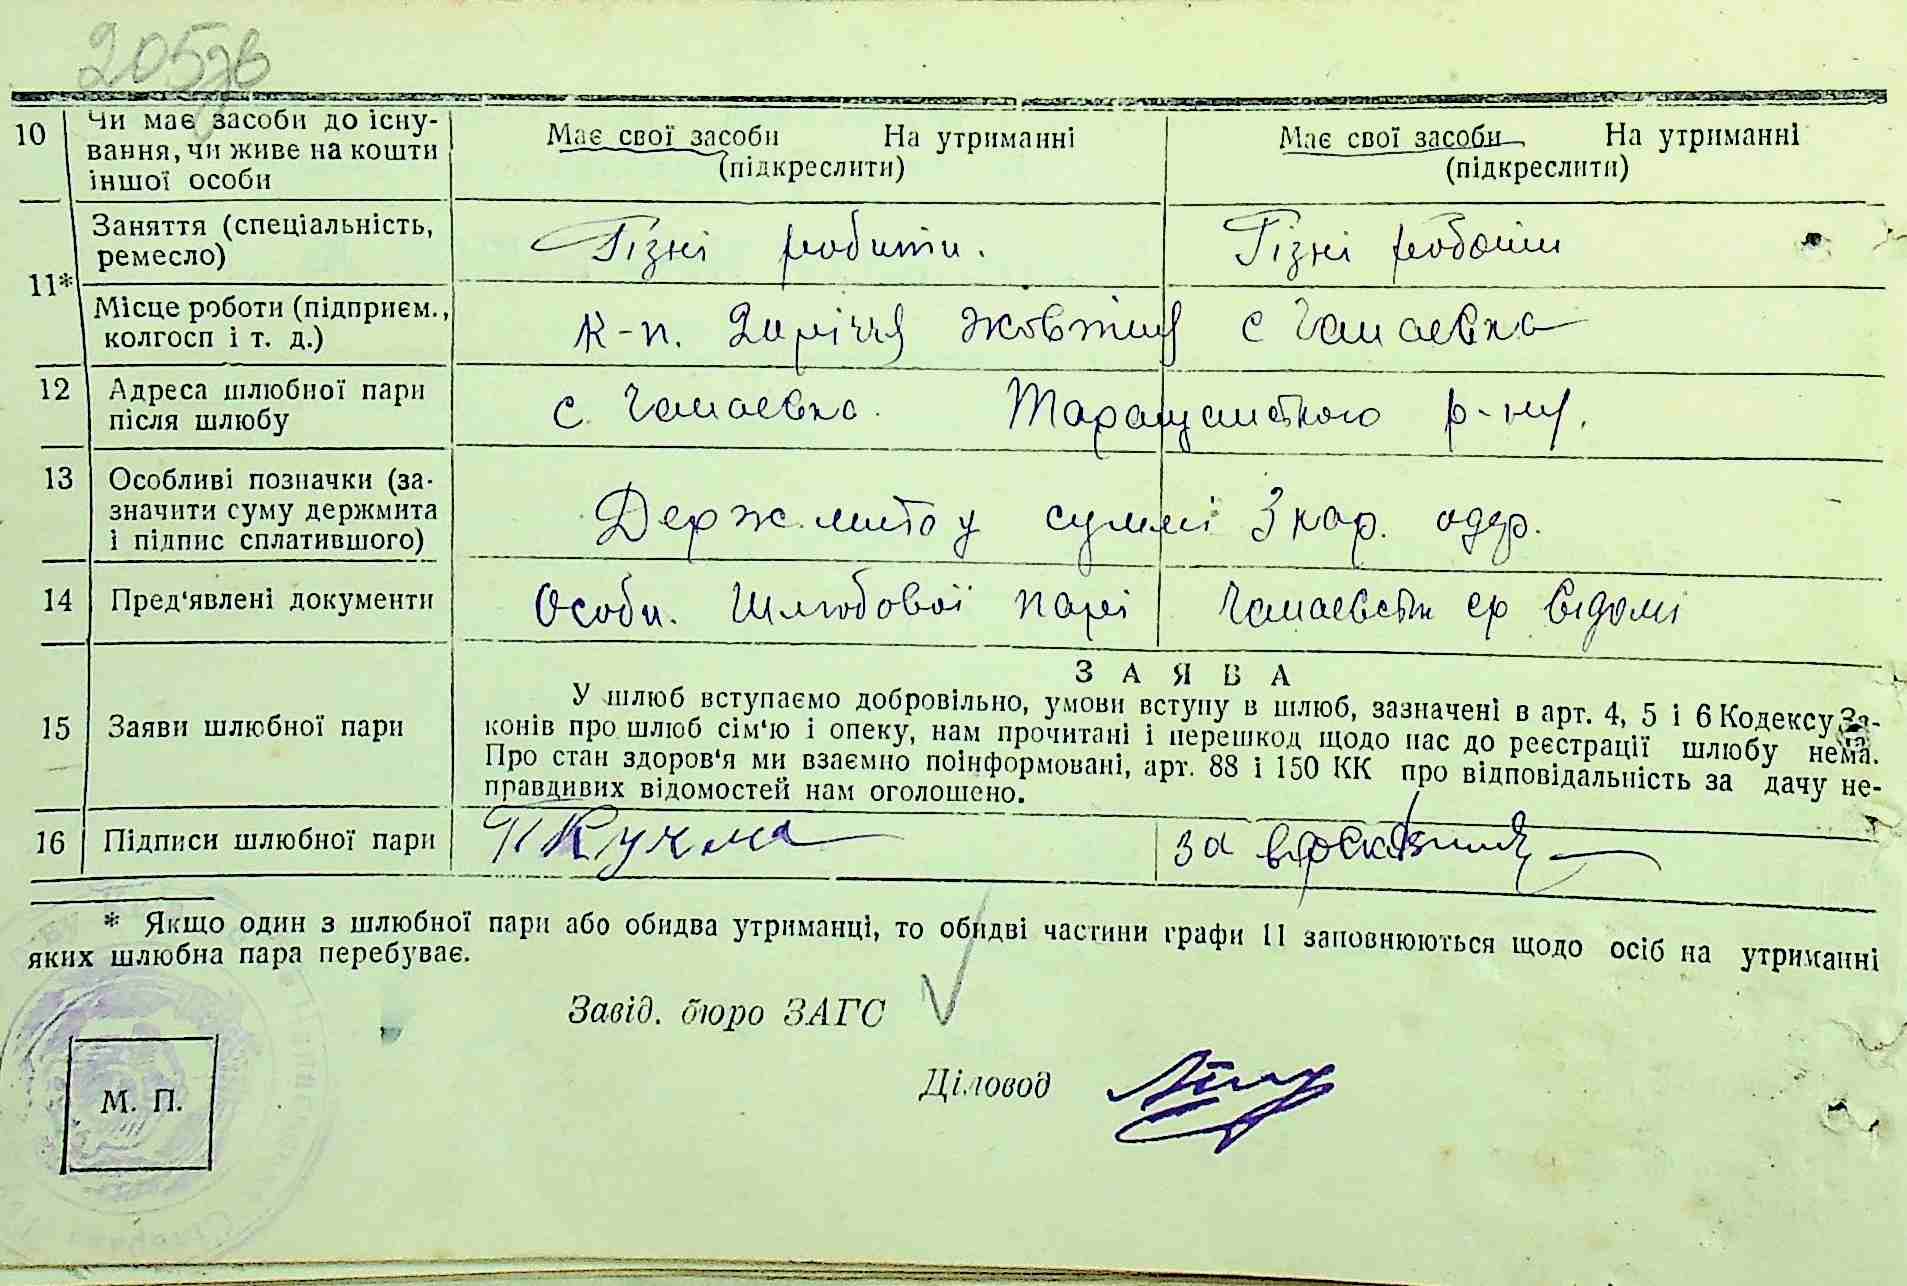 205зв
10 Чи має засоби до існу-
вання, чи живе на кошти
іншої особи
Має свої засоби На утриманні
(підкреслити)
Має свої засоби На утриманні
(підкреслити)
11*
Заняття (спеціальність,
ремесло)
Різні роботи.
Різні роботи
Місце роботи (підприєм.,
колгосп і т. д.)
к-п. 2ил річчя жовтня с Чапаєвка
12 Адреса шлюбної пари
після шлюбу
с. Чапаєвка. Таращанского р-ну.
13 Особливі позначки (за-
значити суму держмита
і підпис сплатившого)
Держмито у суммі 3 кар. одер.
14 Пред'явлені документи
Особи. Шлюбової парі Чапаевскій ср відомі
15 Заяви шлюбної пари
ЗАЯВА
У шлюб вступаємо добровільно, умови вступу в шлюб, зазначені в арт. 4, 5 і 6 Кодексу За-
конів про шлюб сім'ю і опеку, нам прочитані і перешкод щодо нас до реєстрації шлюбу нема.
Про стан здоров'я ми взаємно поінформовані, арт. 88 і 150 КК про відповідальність за дачу не-
правдивих відомостей нам оголошено.
16 Підписи шлюбної пари
Кучма
за
* Якщо один з шлюбної пари або обидва утриманці, то обидві частини графи 11 заповнюються щодо осіб на утриманні
яких шлюбна пара перебуває.
Завід. бюро ЗАГС
Діловод
М. П.